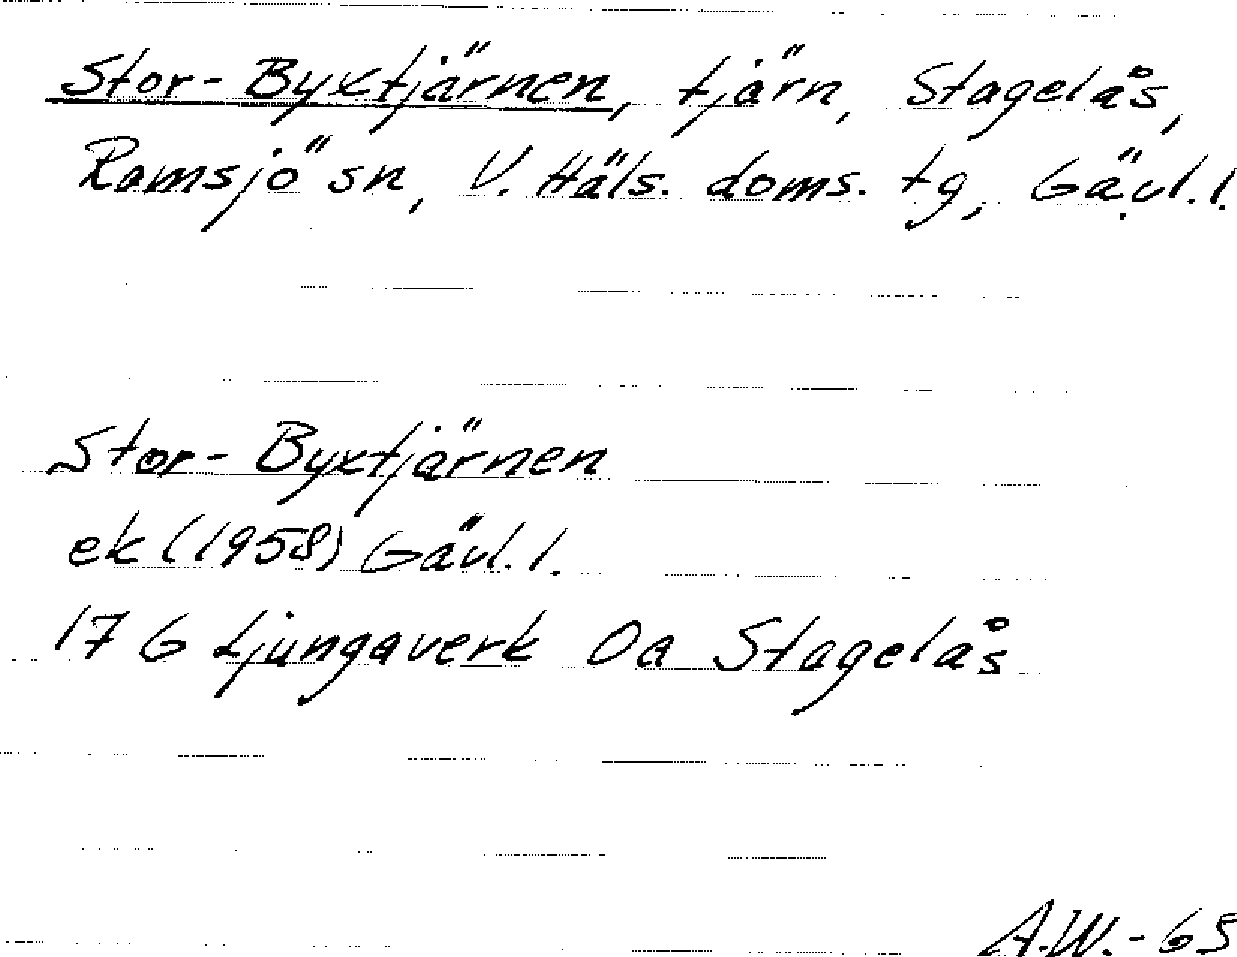 Stor-Byxtjärnen, tjärn, Stagelås,
Ramsjö sn, V. Häls. doms. tg, Gävl.l.
Stor-Byxtjärnen
ek (1958) Gävl.l.
17 G Ljungaverk Oa Stagelås
A.W.-65